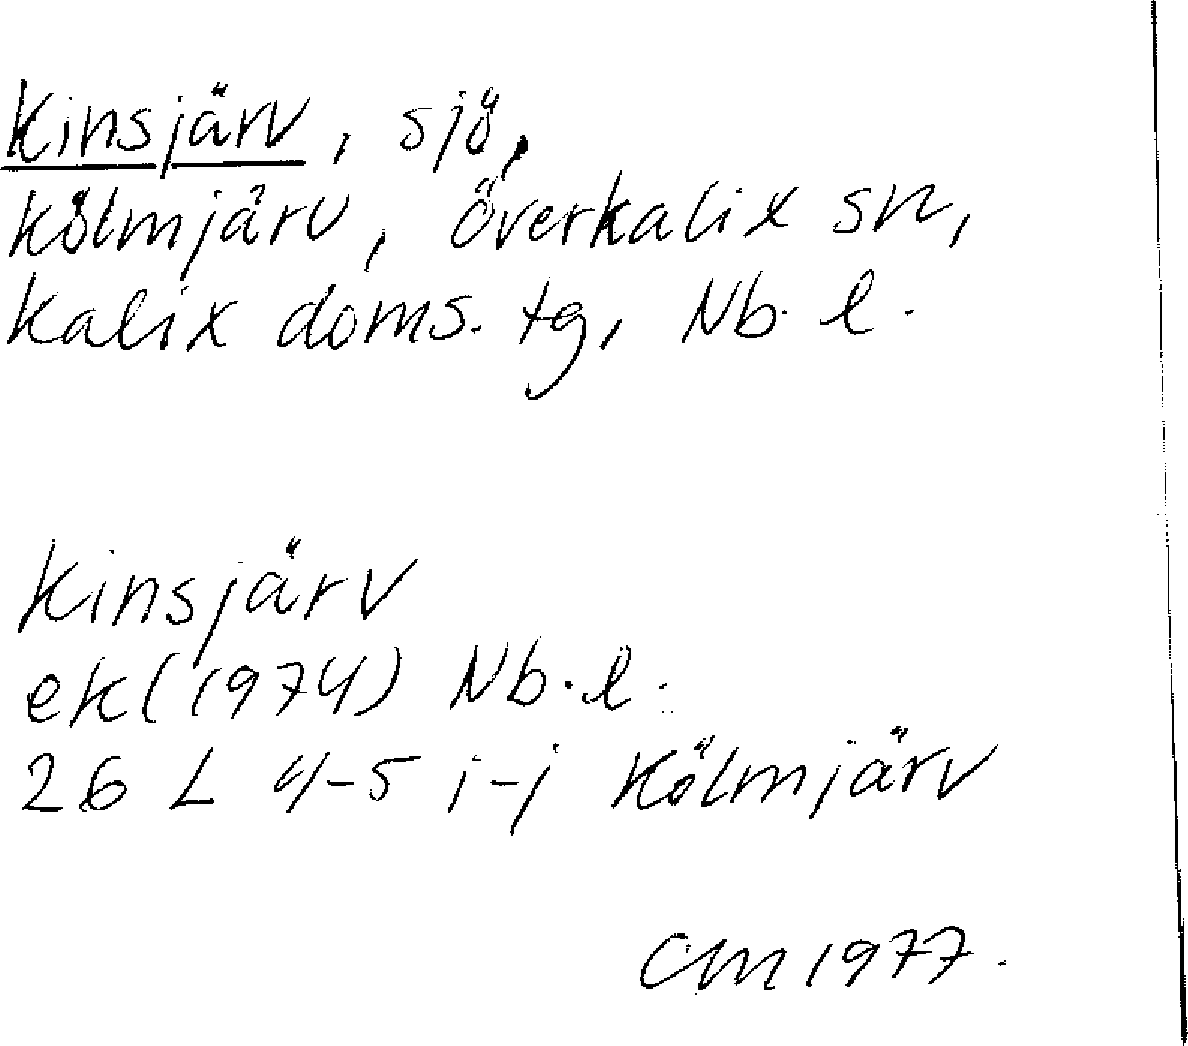 Kinsjärv, sjö,
Kölmjärv, Överkalix sn,
Kalix doms. tg, Nb. l.
Kinsjärv
ek (1974) Nb. l.
26 L 4-5 i-j Kölmjärv
CM 1977.